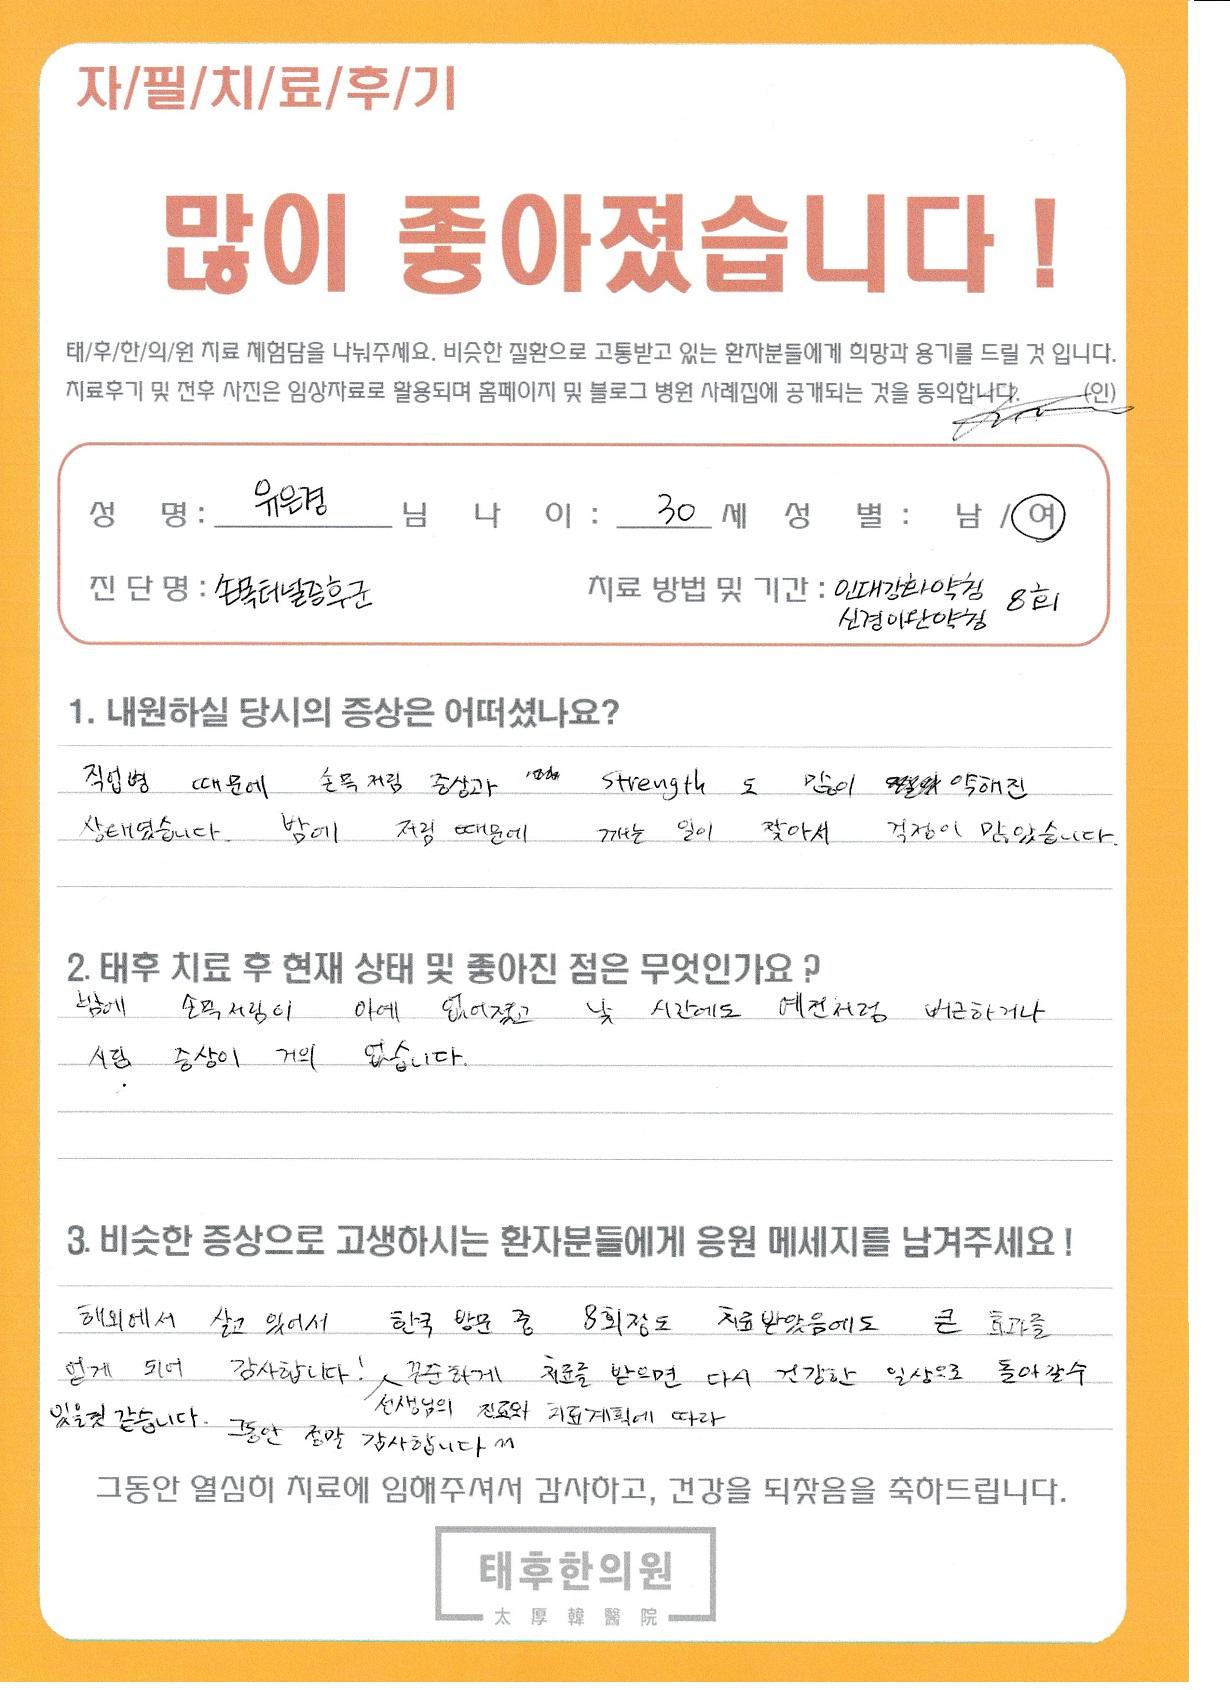 자/필/치/료/후/기
많이 좋아졌습니다 !
태/후/한/의/원 치료 체험담을 나눠주세요. 비슷한 질환으로 고통받고 있는 환자분들에게 희망과 용기를 드릴 것 입니다.
치료후기 및 전후 사진은 임상자료로 활용되며 홈페이지 및 블로그 병원 사례집에 공개되는 것을 동의합니다. (인)
성 명 : 유은경 님 나 이 : 30 세 성 별 : 남 / 여
진 단 명 : 손목터널증후군 치료 방법 및 기간 : 인대강화약침 8회
신경이완약침
1. 내원하실 당시의 증상은 어떠셨나요?
직업병 때문에 손목 저림 증상과 strength 도 많이 약해진
상태였습니다. 밤에 저림 때문에 깨는 일이 잦아서 걱정이 많았습니다.
2. 태후 치료 후 현재 상태 및 좋아진 점은 무엇인가요 ?
밤에 손목저림이 아예 없어졌고 낮 시간에도 예전처럼 뻐근하거나
시린 증상이 거의 없습니다.
3. 비슷한 증상으로 고생하시는 환자분들에게 응원 메세지를 남겨주세요 !
해외에서 살고 있어서 한국 방문 중 8회정도 치료받았음에도 큰 효과를
얻게 되어 감사합니다! 꾸준하게 치료를 받으면 다시 건강한 일상으로 돌아갈수
선생님의 진료와 치료계획에 따라
있을것 같습니다. 그동안 정말 감사합니다 ^^
그동안 열심히 치료에 임해주셔서 감사하고, 건강을 되찾음을 축하드립니다.
태후한의원
太厚韓醫院